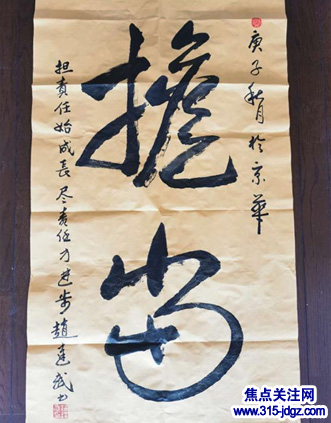 庚子秋月於京華
擔
当
担責任始成長 尽责任方进步 趙 武书
焦点关注网
www.315-jdgz.com